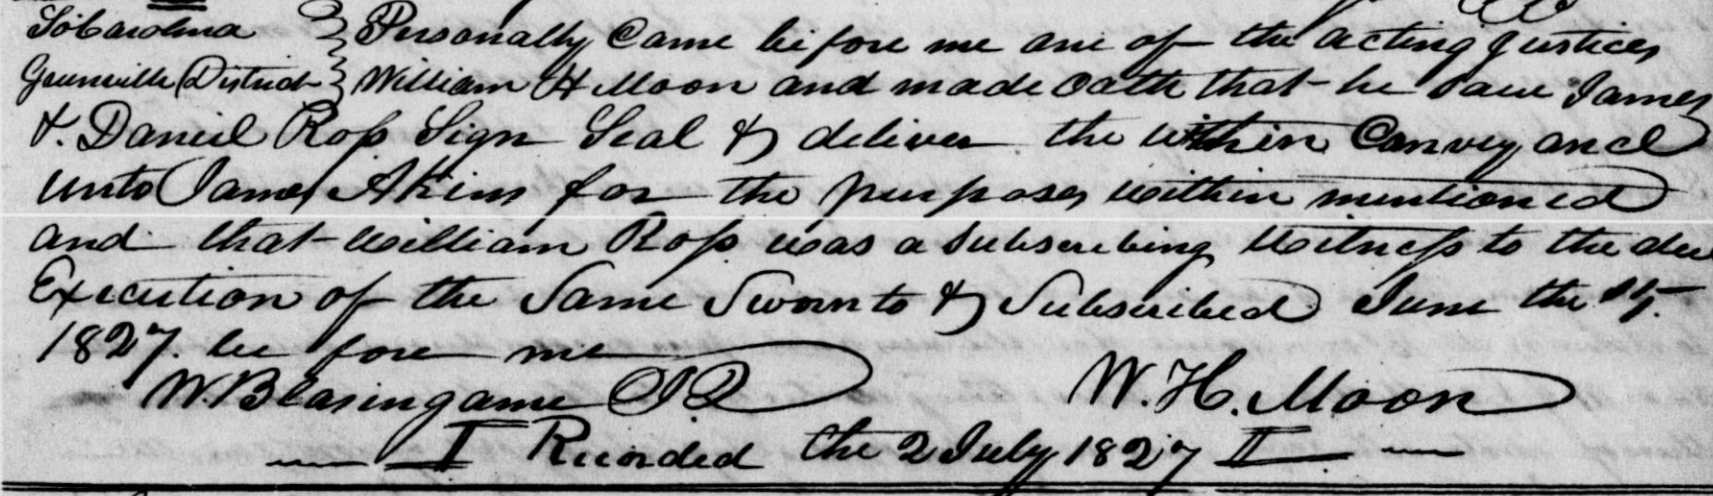 So Carolina } Personally Came before me one of the acting Justices
Greenville District } William H Moon and made Oath that he saw James
& Daniel Ross Sign Seal & deliver the within Conveyance
unto James Akins for the purposes within mentioned
and that William Ross was a subscribing Witness to the due
Execution of the Same Sworn to & Subscribed June the
1827. before me
W. Blasingame J.Q W. H. Moon
Recorded the 2 July 1827